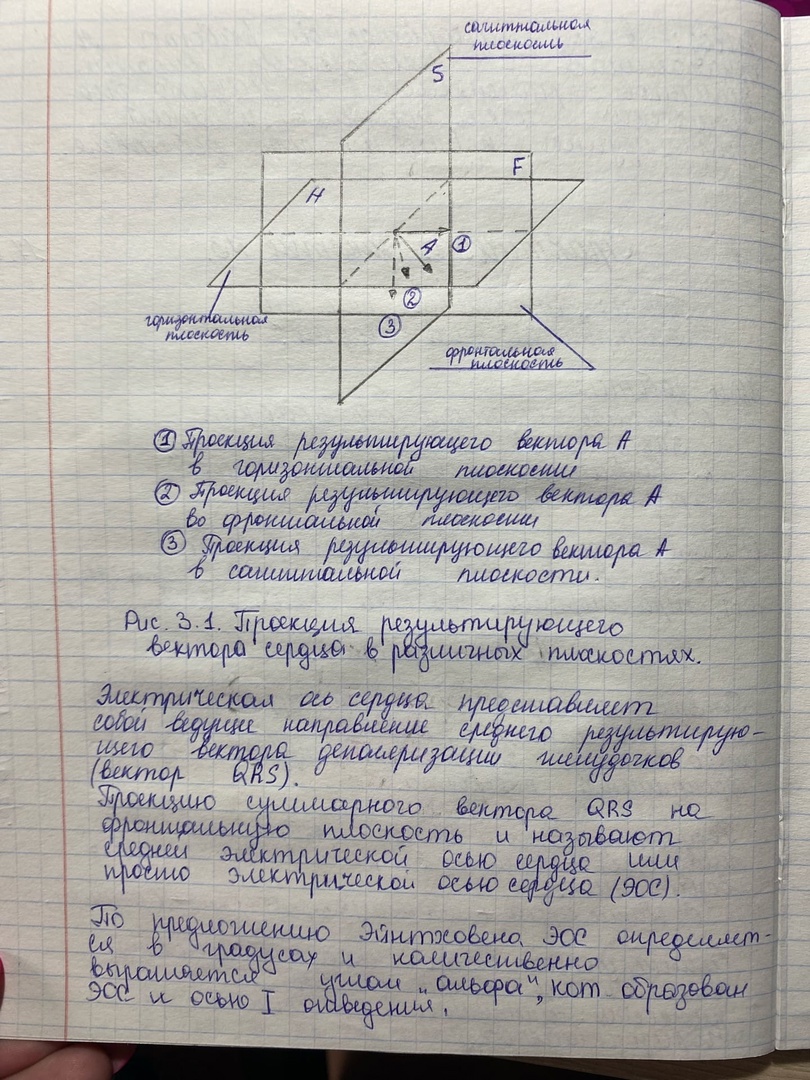 сагиттальная
плоскость
S
F
H
A
1
2
3
горизонтальная
плоскость
фронтальная
плоскость
① Проекция результирующего вектора А
в горизонтальной плоскости
② Проекция результирующего вектора А
во фронтальной плоскости
③ Проекция результирующего вектора А
в сагиттальной плоскости.
Рис. 3.1. Проекция результирующего
вектора сердца в различных плоскостях.
Электрическая ось сердца представляет
собой ведущее направление среднего результирую-
щего вектора деполяризации желудочков
(вектор QRS).
Проекцию суммарного вектора QRS на
фронтальную плоскость и называют
средней электрической осью сердца или
просто электрической осью сердца (ЭОС).
По предложению Эйнтховена ЭОС определяет-
ся в градусах и количественно
выражается углом „альфа", кот. образован
ЭОС и осью I отведения.